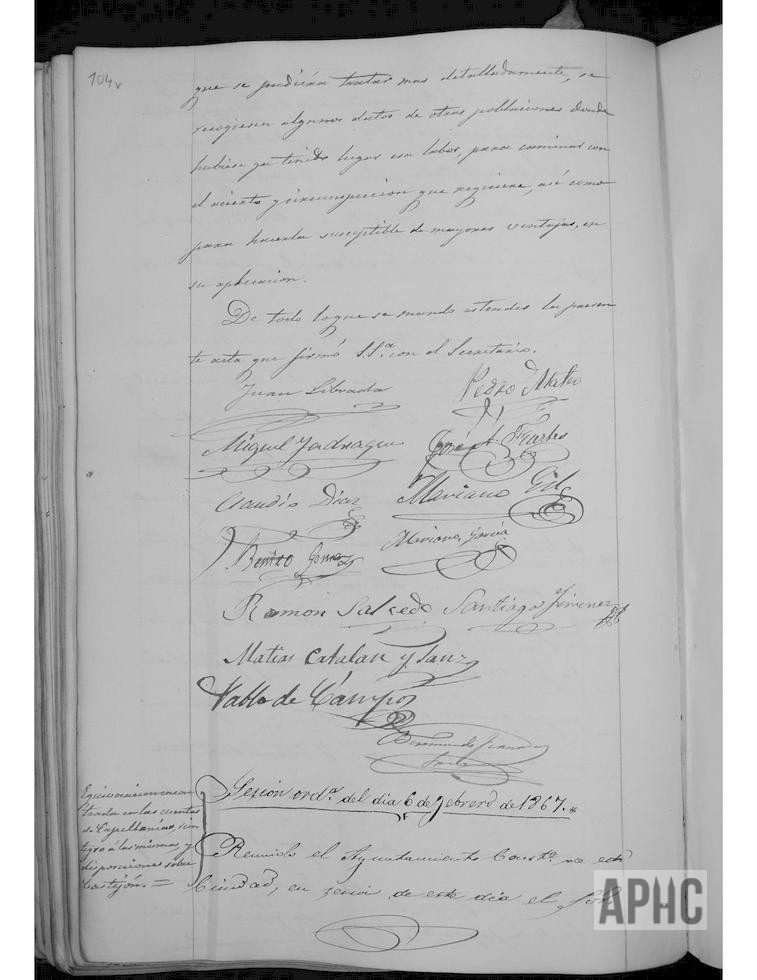 104v
que se pudiera tratar mas detalladamente, se
recogiesen algunos datos de otras poblaciones donde
hubiese ya tenido lugar esa labor, para caminar con
el acierto y circunspeccion que requiere, así como
para hacerla susceptible de mayores ventajas, en
su aplicacion.
De todo lo que se mandó estender la presen
te acta que firmó S.S.ª con el Secretario.
Juan Librada
Pedro Mateo
Miguel Jadraque
José A. Fuertes
Claudio Diaz
Mariano Gil
Benito Gomez
Mariano Garcia
Ramon Salcedo
Santiago Jimenez
Matias Catalan y Sanz
Pablo de Campos
Bermundo
Sesion ord.ª del dia 6 de Febrero de 1867.
Equivocacion encon
trada en las cuentas
de Capellanías, rein
tegro á las mismas, y
disposiciones sobre
Castejón. =
Reunido el Ayuntamiento Const.l de esta
Ciudad, en sesion de este dia el
APHC